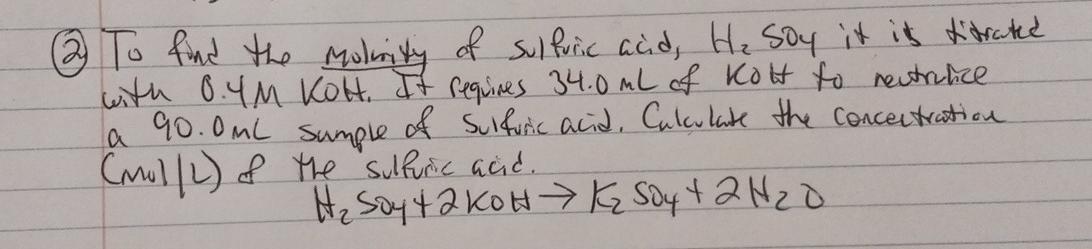 ② To find the Molarity of sulfuric acid, H₂SO₄ it is titrated
with 0.4M KOH. It requires 34.0 mL of KOH to neutralize
a 90.0mL sample of sulfuric acid. Calculate the concentration
(mol/L) of the sulfuric acid.
H₂SO₄ + 2KOH → K₂SO₄ + 2H₂O